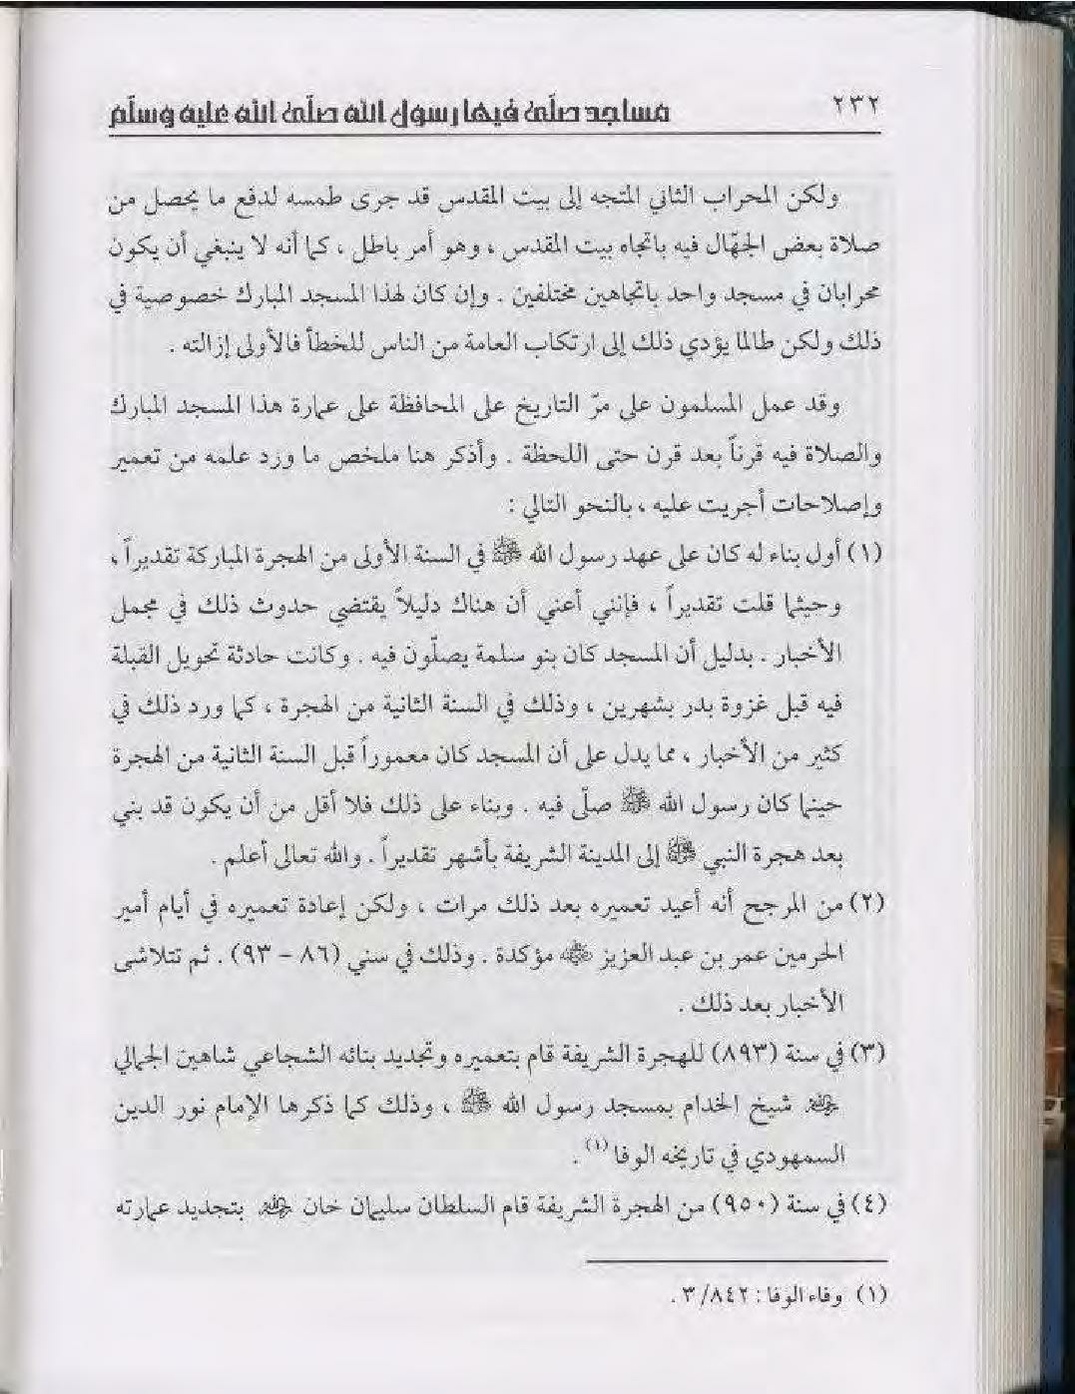 ٢٣٢
مساجد صلّى فيها رسول الله صلّى الله عليه وسلّم
ولكن المحراب الثاني المتجه إلى بيت المقدس قد جرى طمسه لدفع ما يحصل من
صلاة بعض الجهّال فيه باتجاه بيت المقدس ، وهو أمر باطل ، كما أنه لا ينبغي أن يكون
محرابان في مسجد واحد باتجاهين مختلفين . وإن كان لهذا المسجد المبارك خصوصية في
ذلك ولكن طالما يؤدي ذلك إلى ارتكاب العامة من الناس للخطأ فالأولى إزالته .
وقد عمل المسلمون على مرّ التاريخ على المحافظة على عمارة هذا المسجد المبارك
والصلاة فيه قرناً بعد قرن حتى اللحظة . وأذكر هنا ملخص ما ورد علمه من تعمير
وإصلاحات أجريت عليه ، بالنحو التالي :
(١) أول بناء له كان على عهد رسول الله ﷺ في السنة الأولى من الهجرة المباركة تقديراً ،
وحيثما قلت تقديراً ، فإنني أعني أن هناك دليلاً يقتضي حدوث ذلك في مجمل
الأخبار . بدليل أن المسجد كان بنو سلمة يصلّون فيه . وكانت حادثة تحويل القبلة
فيه قبل غزوة بدر بشهرين ، وذلك في السنة الثانية من الهجرة ، كما ورد ذلك في
كثير من الأخبار ، مما يدل على أن المسجد كان معموراً قبل السنة الثانية من الهجرة
حينما كان رسول الله ﷺ صلّى فيه . وبناء على ذلك فلا أقل من أن يكون قد بني
بعد هجرة النبي ﷺ إلى المدينة الشريفة بأشهر تقديراً . والله تعالى أعلم .
(٢) من المرجح أنه أعيد تعميره بعد ذلك مرات ، ولكن إعادة تعميره في أيام أمير
الحرمين عمر بن عبد العزيز مؤكدة . وذلك في سني (٨٦ – ٩٣) . ثم تتلاشى
الأخبار بعد ذلك .
(٣) في سنة (٨٩٣) للهجرة الشريفة قام بتعميره وتجديد بنائه الشجاعي شاهين الجمالي
شيخ الخدام بمسجد رسول الله ﷺ ، وذلك كما ذكرها الإمام نور الدين
السمهودي في تاريخه الوفا (١) .
(٤) في سنة (٩٥٠) من الهجرة الشريفة قام السلطان سليمان خان بتجديد عمارته
(١) وفاء الوفا : ٣/٨٤٢ .